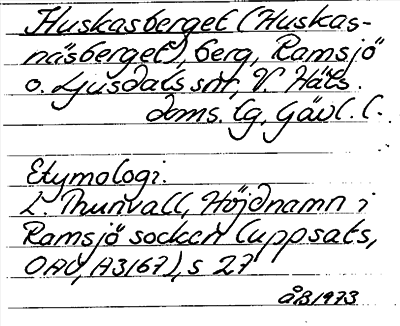 Huskasberget (Huskas-
näsberget), berg, Ramsjö
o. Ljusdals snr, V. Häls.
doms. lg, Gävl. l.
Etymologi.
L. Thunvall, Höjdnamn i
Ramsjö socken (uppsats,
OAU, A3167), s 27
ÅB 1973